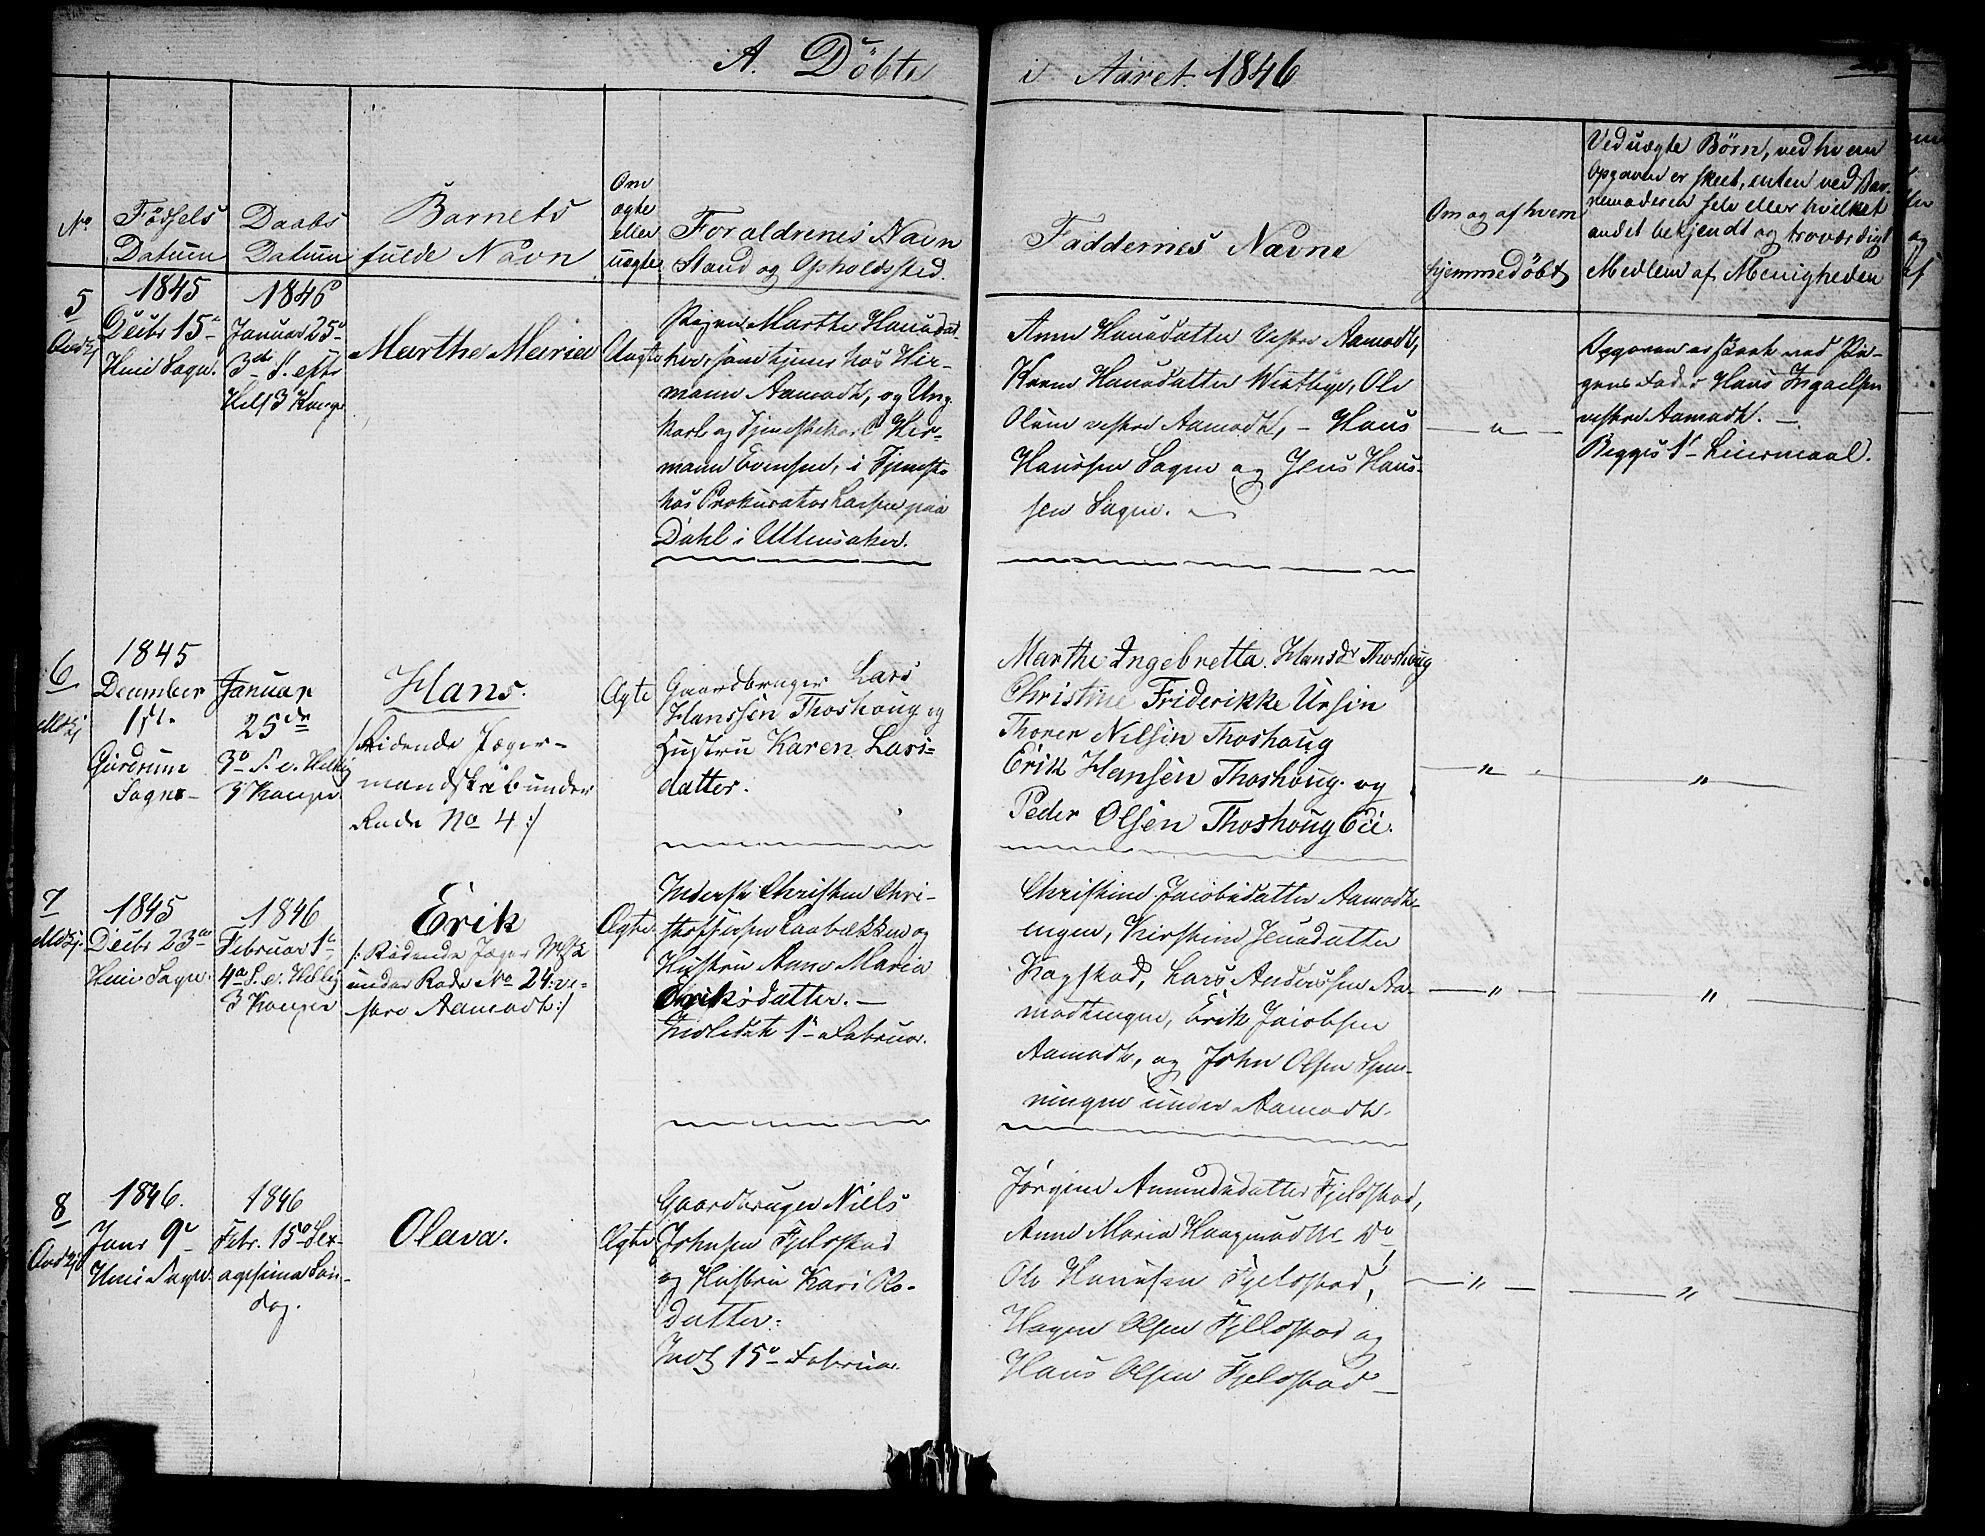 A. Döbte i Aaret 1846
No
Födsels
Datum
Daabs
Datum
Barnets
fulde Navn
Om
ægte
eller
uægte
Forældrenes Navn
Stand og Opholdssted.
Faddernes Navne
Om og af hvem
hjemmedöbt
Ved uægte Børn, ved hvem
Opgaven er skeet, enten ved Bar-
nemoderen selv eller hvilket
andet bekjendt og troværdigt
Medlem af Menigheden
5
1845
Decbr 15de
Heni Sogn.
1846
Januar 25de
3die S. efter
Hell 3 Konge
Marthe Marie
Uægte
Pigen Marthe Hansdat-
ter, som tjener hos Her-
mann Aamodt, og Ung-
karl og Tjenestekarl Her-
mann Evensen, i Tjeneste
hos Prokurator Larsen paa
Dahl i Ullensaker.
Anne Hansdatter Vestre Aamodt,
Karen Hansdatter Ole
Olsen vestre Aamodt, - Hans
Hanssen Sogn og Jens Hans-
sen Sogn.
"
Opgaven er skeet ved Pi-
gens Fader Hans
vestre Aamodt. -
Begges 1ste Leiermaal.
6
1845
December
1ste
Gjerdrum
Sogn
Januar
25de
3die S. e. Hellig
3 Konger
Hans.
/: Ridende Jæger-
mandskab under
Rode No 4 :/
Ægte
Gaardbruger Lars
Hanssen Thoshoug og
Hustru Karen Lars-
datter.
Marthe Ingebretta Hansdr Thoshoug
Christine Friderikke Ursin
Thorer Nilsen Thoshoug
Erik Hansen Thoshoug. og
Peder Olsen Thoshoug Eie.
"
"
7
1845
Decbr 23de
Heni Sogn.
1846
Februar 1ste
4de S. e. Hellig
3 Konger
Erik
/: Ridende Jæger Msk
under Rode No 24: ve-
stre Aamodt :/
Ægte
Inderst Christen Chri-
stoffersen Laabækken og
Hustru Anne Maria
Eriksdatter. -
Indledet 1ste Februar.
Christine Jacobsdatter Aamodt-
engen, Kirstine Jensdatter
Kogstad, Lars Anderssen Aa-
modtengen, Erik Jacobsen
Aamodt, og John Olsen
under Aamodt.
"
"
8
1846.
Janr 9de
Heni Sogn.
1846
Febr. 15de Sex-
agesima Søn-
dag.
Olava.
Ægte
Gaardbruger Niels
Johnsen Fjeldstad
og Hustru Kari Ols-
datter:
Indl 15de Februar.
Jørgine Amundsdatter Fjeldstad,
Anne Maria Do
Ole Hanssen Fjeldstad,
Hagen Olsen Fjeldstad og
Hans Olsen Fjeldstad
"
"